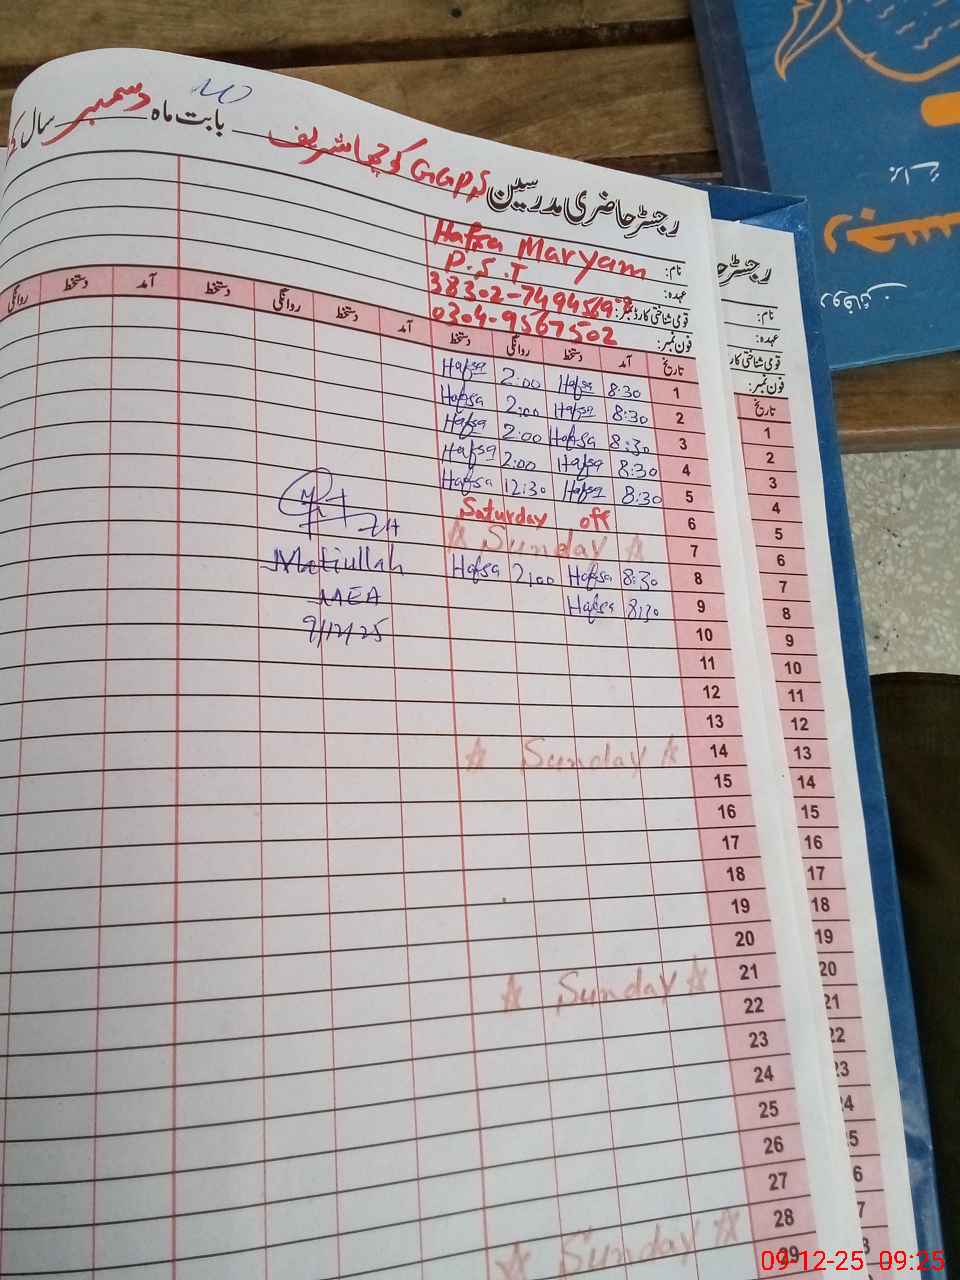 رجسٹر حاضری مدرسین GGPS کوچھا شریف بابت ماہ دسمبر سال
نام: Hafsa Maryam
عہدہ: P.S.T
قومی شناختی کارڈ نمبر:
فون نمبر: 0304-9567502
تاریخ آمد دستخط روانگی دستخط آمد دستخط روانگی دستخط آمد دستخط روانگی
1 8:30 Hafsa 2:00 Hafsa
2 8:30 Hafsa 2:00 Hafsa
3 8:30 Hafsa 2:00 Hafsa
4 8:30 Hafsa 2:00 Hafsa
5 8:30 Hafsa 12:30 Hafsa
6 Saturday off
7 Sunday
8 8:30 Hafsa 2:00 Hafsa
9 8:30 Hafsa
10
11
12
13
14 Sunday
15
16
17
18
19
20
21 Sunday
22
23
24
25
26
27
28 Sunday
29
Matiullah
MEA
9/12/25
نام:
عہدہ:
قومی شناختی کارڈ
فون نمبر:
تاریخ
1
2
3
4
5
6
7
8
9
10
11
12
13
14
15
16
17
18
19
20
21
22
23
24
09-12-25 09:25